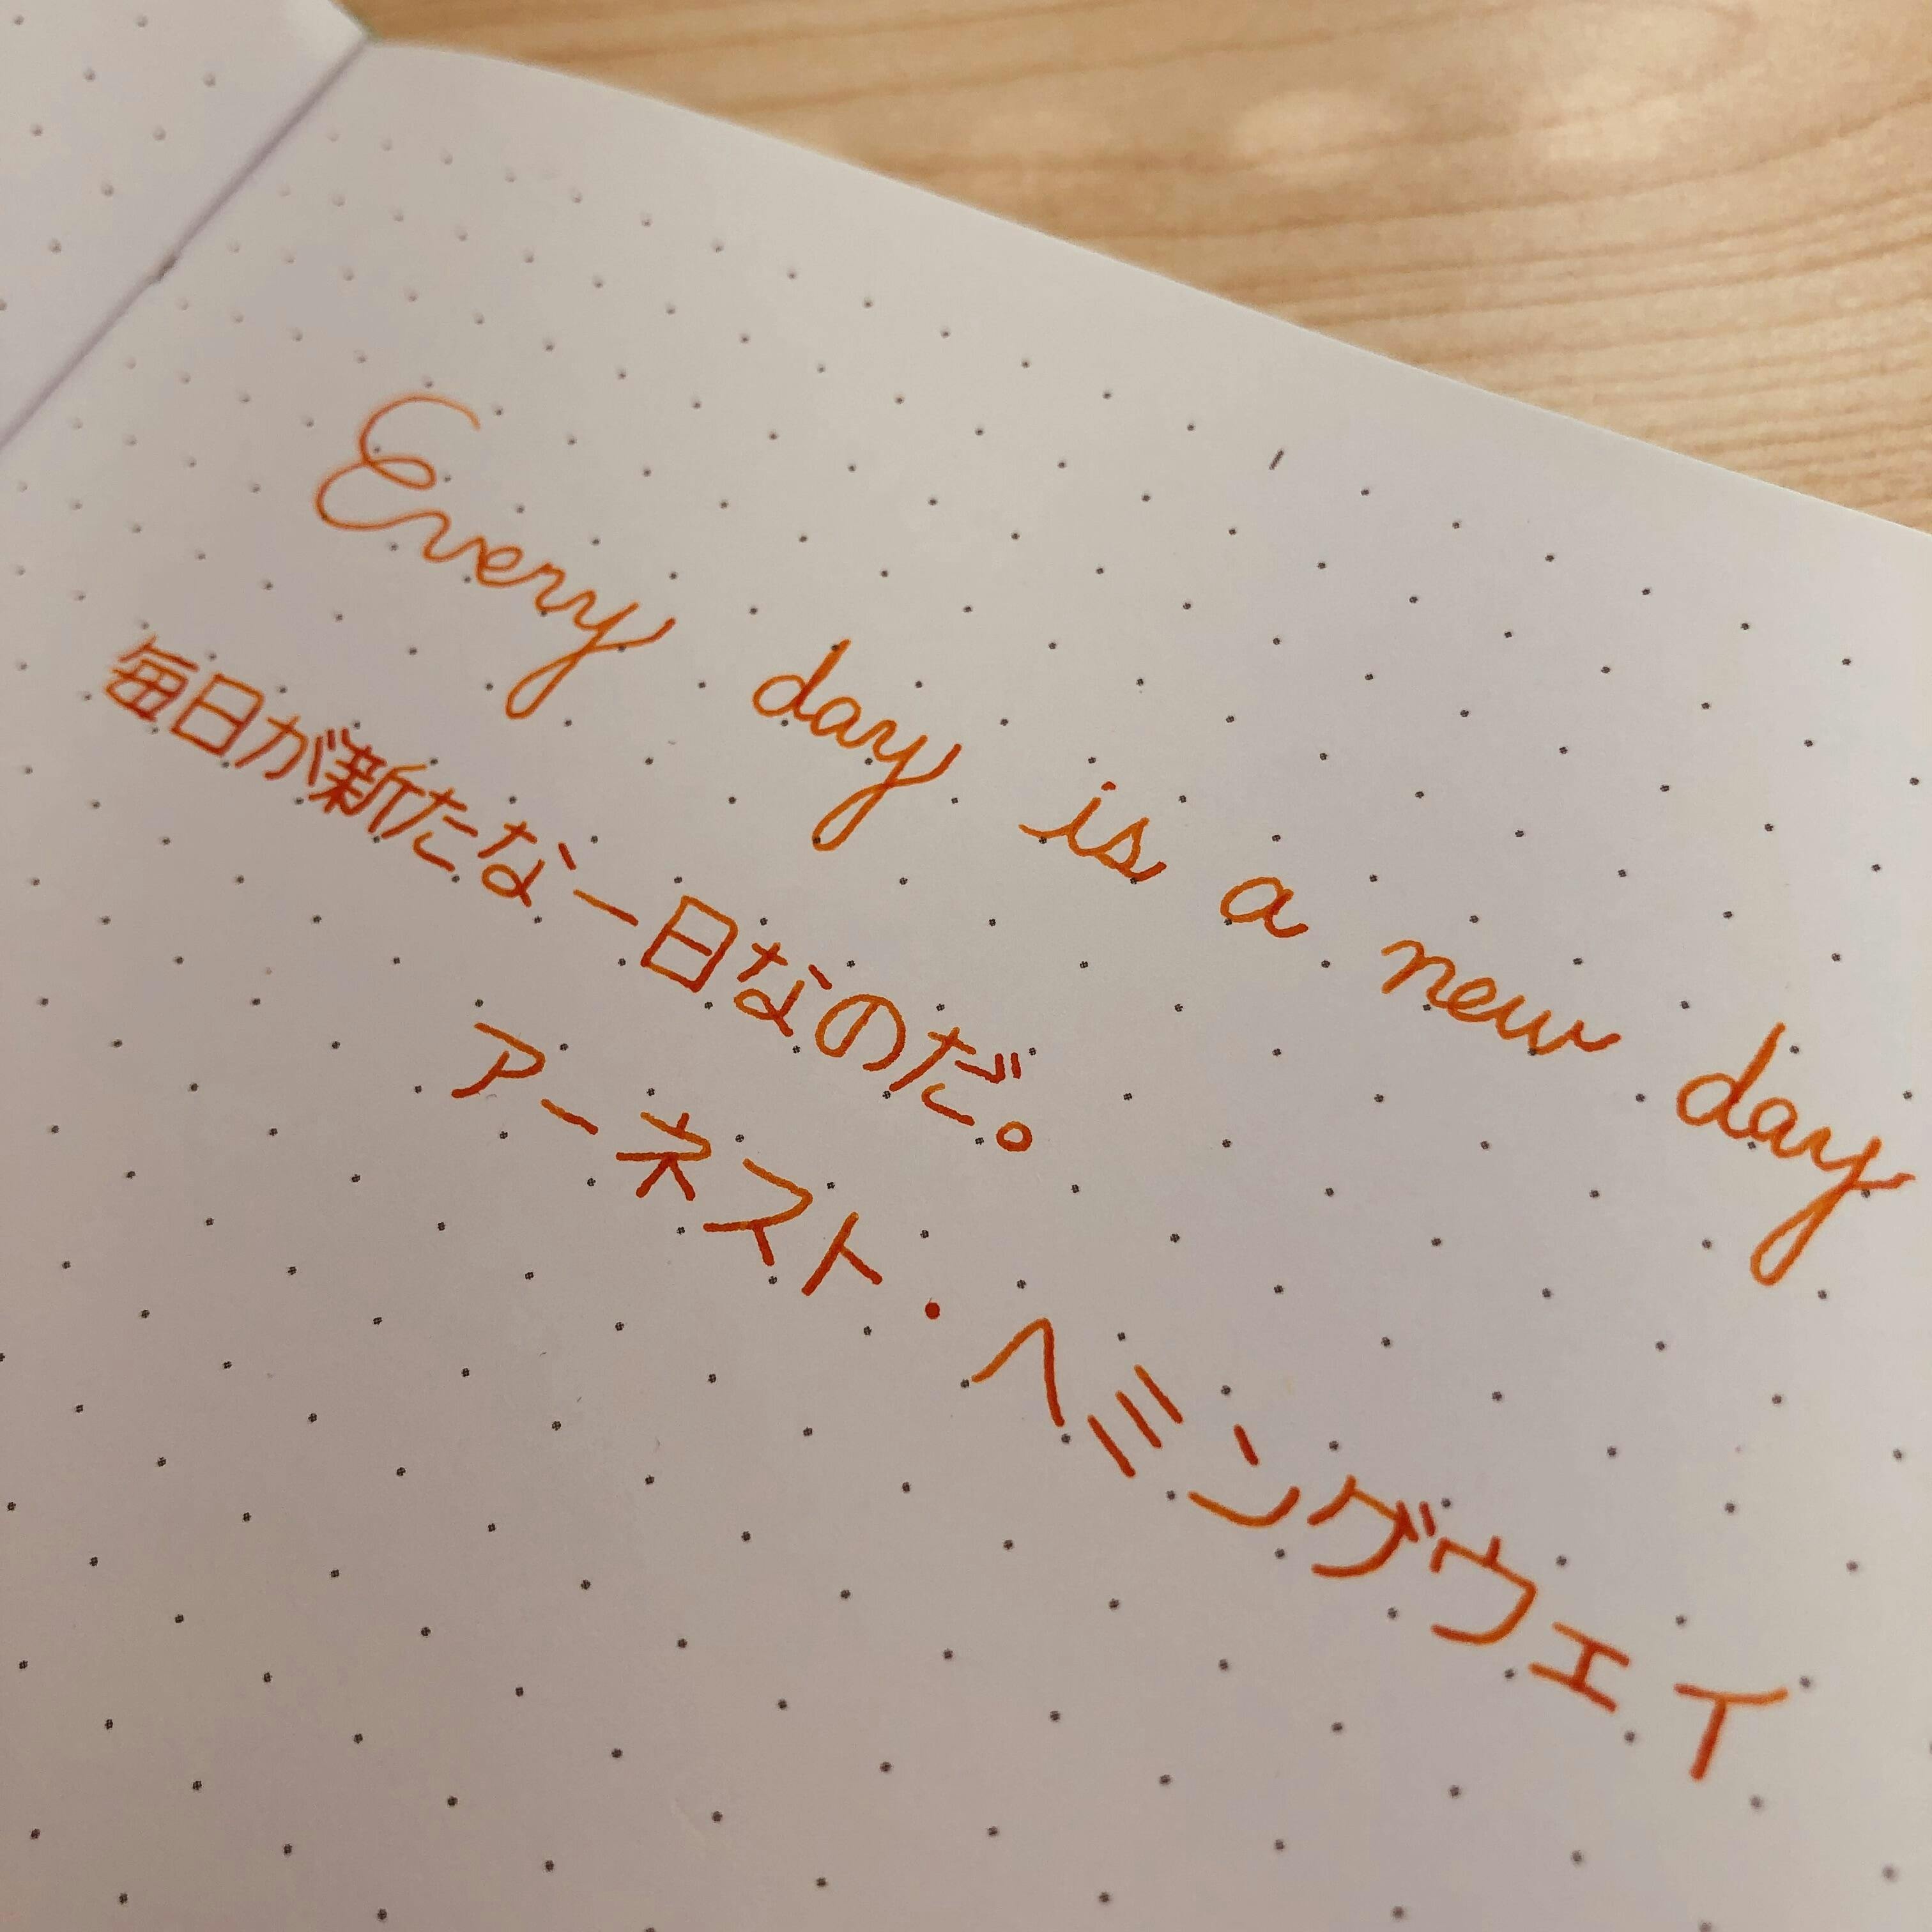 Every day is a new day
毎日が新たな一日なのだ。
アーネスト・ヘミングウェイ